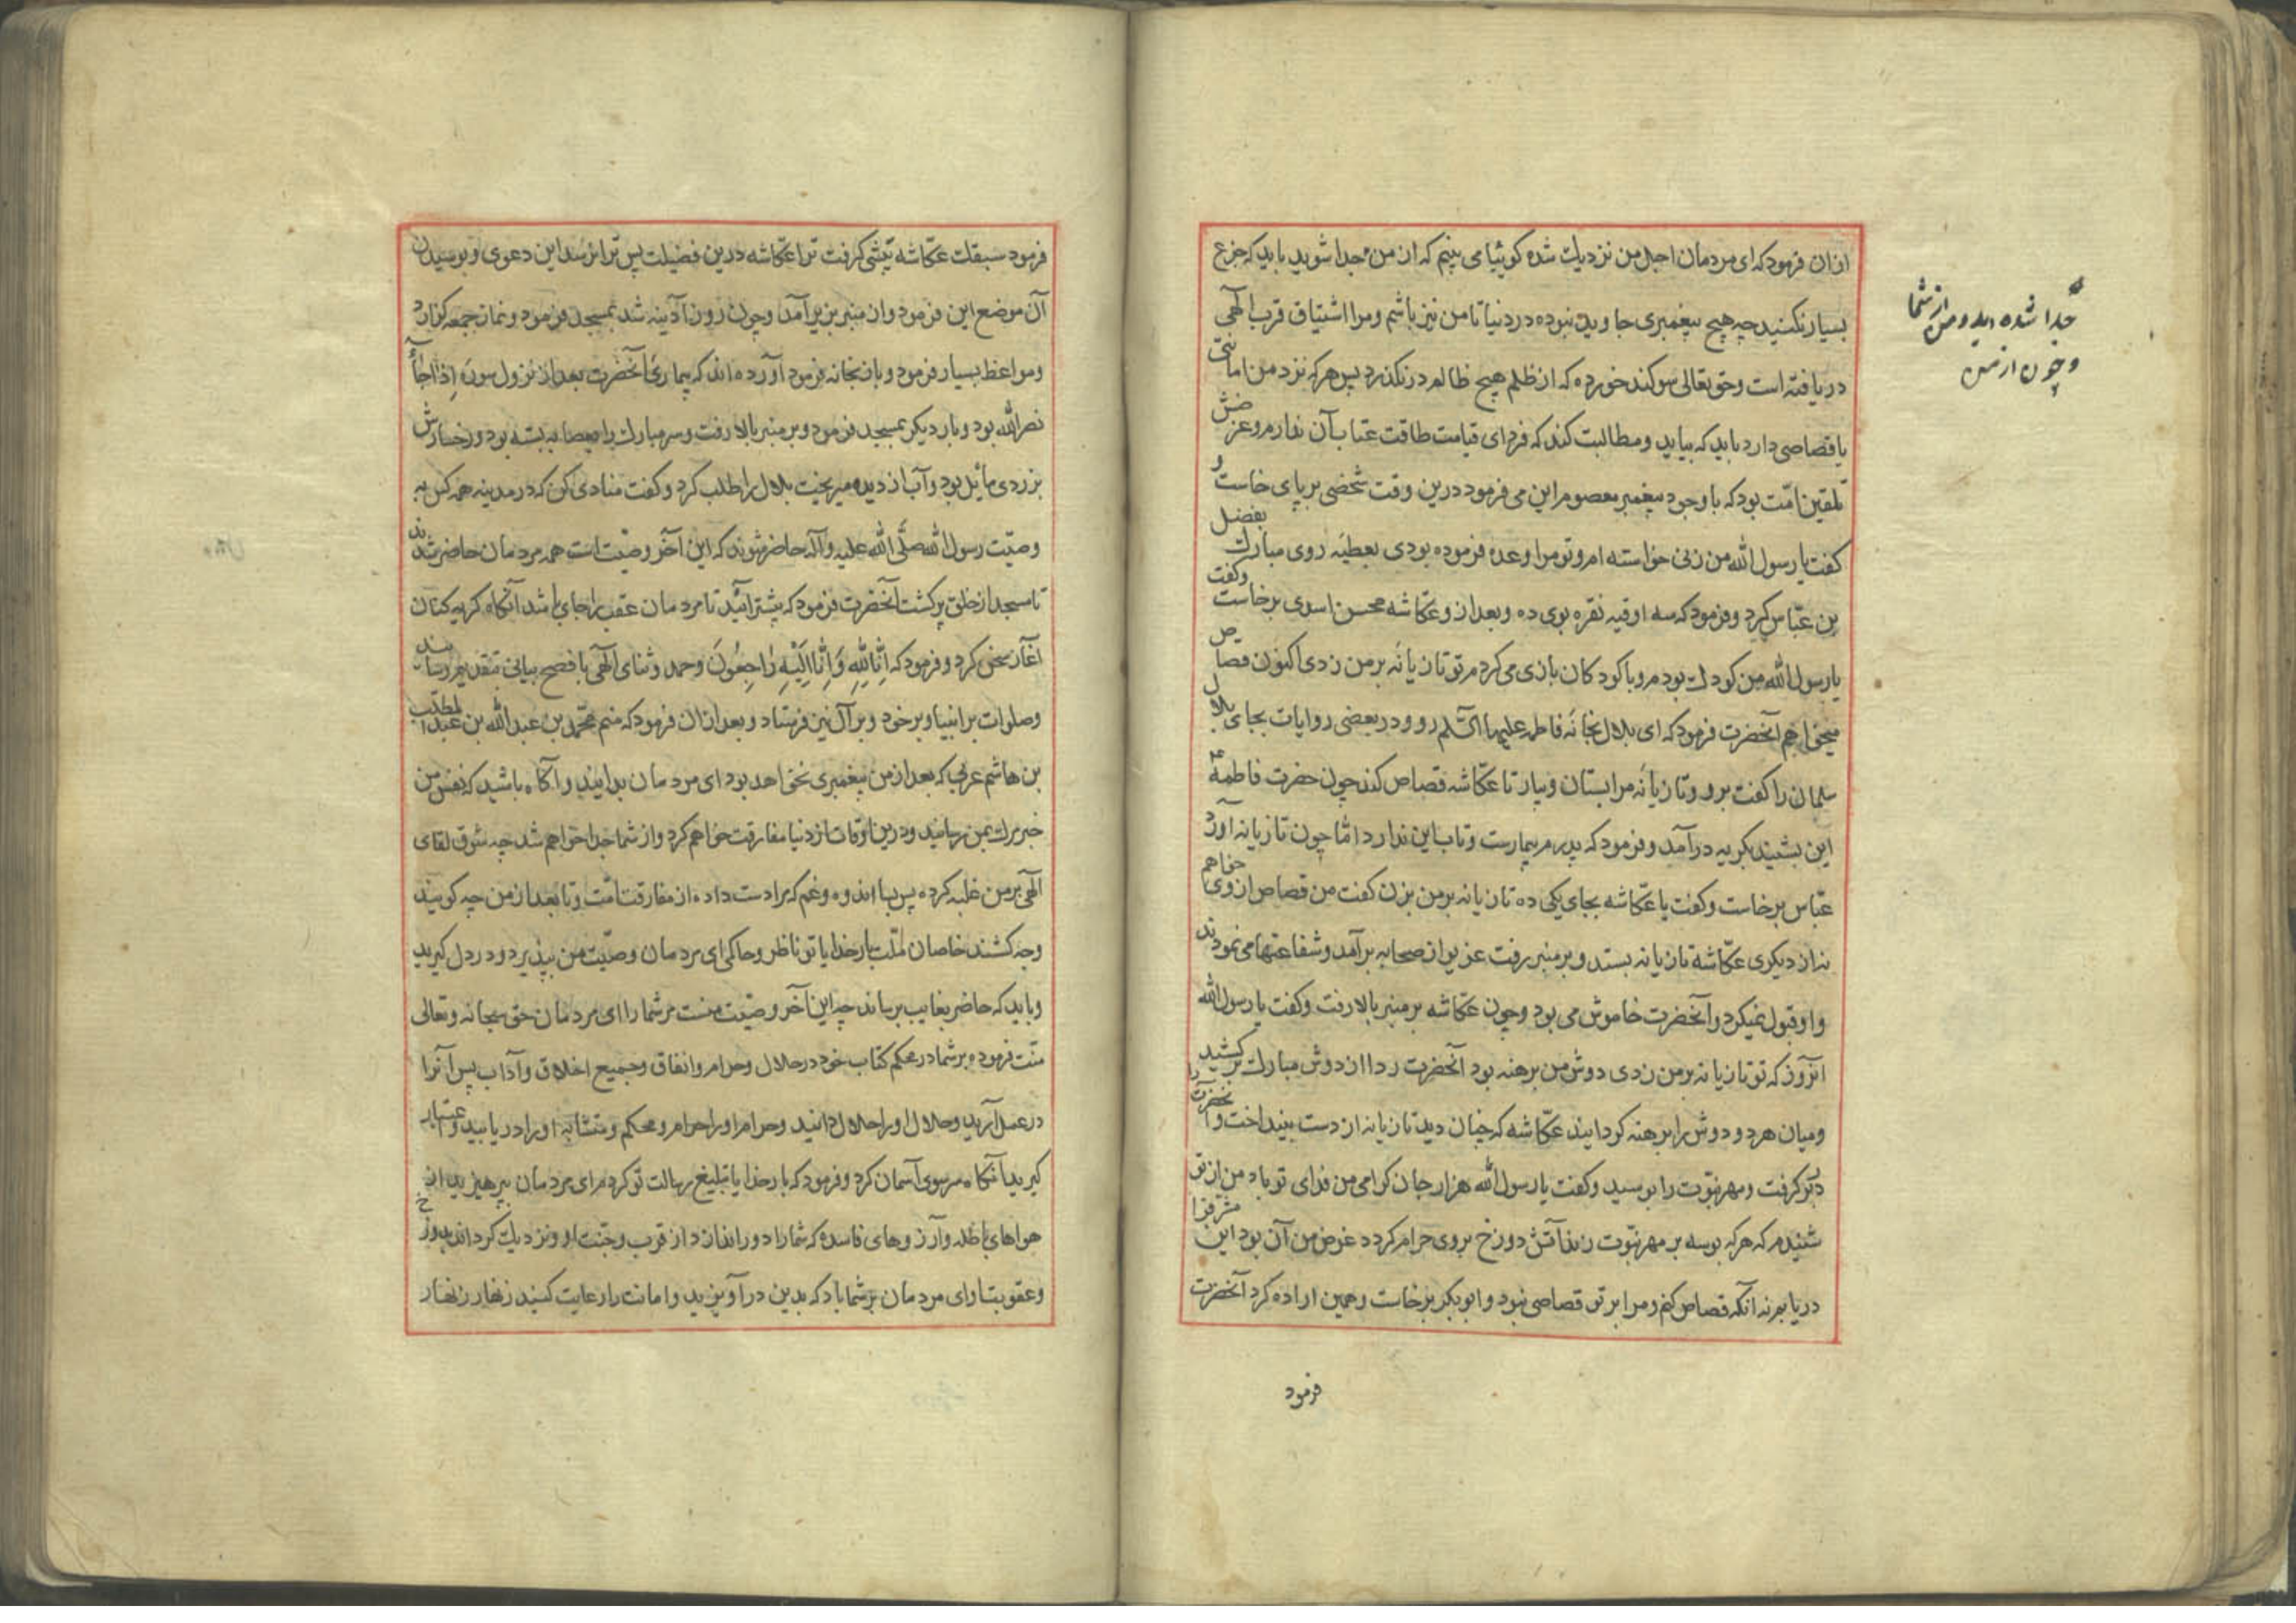 ازان فرمود که ای مردمان اجل من نزدیك شده کوئیا می بینم که از من جدا شوید باید که جزع
بسیار نکنید چه هیچ پیغمبری جاوید نبوده در دنیا تا من نیز باشم و مرا اشتیاق قرب الٓهی
دریافته است و حق تعالی سوکند خورده که از ظلم هیچ ظالم درنکذرد پس هرکه نزد من امانتی
یا قصاصی دارد باید که بیاید و مطالبت کند که فردای قیامت طاقت عتاب آن ندارم و غرضش
تلقین امّت بود که با وجود پیغمبر معصوم این می فرمود درین وقت شخصی بر پای خاست و
کفت یا رسول الله من زنی خواسته ام و تو مرا وعده فرموده بودی بعطیّه روی مبارك بفضل
بن عبّاس کرد و فرمود که سه اوقیه نقره بوی ده و بعد از و عکّاشه محسن اسدی برخاست وکفت
یا رسول الله من کودك بودم و با کودکان بازی می کردم تو تازیانه بر من زدی اکنون قصاص
میخواهم آنحضرت فرمود که ای بلال بخانه فاطمه علیها السّلم رو و در بعضی روایات بجای بلال
سلمان را کفت برو و تازیانه مرا بستان و بیار تا عکّاشه قصاص کند چون حضرت فاطمه ع
این بشنید بکریه درآمد و فرمود که پدرم بیمارست و تاب این ندارد امّا چون تازیانه آورد
عبّاس برخاست و کفت یا عکّاشه بجای یکی ده تازیانه بر من بزن کفت من قصاص از وی خواهم
نه از دیکری عکّاشه تازیانه بستد و بر منبر رفت غریو از صحابه برآمد و شفاعتها می نمودند
و او قبول نمیکرد و آنحضرت خاموش می بود و چون عکّاشه بر منبر بالا رفت و کفت یا رسول الله
آنروز که تو تازیانه بر من زدی دوش من برهنه بود آنحضرت ردا از دوش مبارك برکشید
و میان هر دو دوش را برهنه کردانید عکّاشه که چنان دید تازیانه از دست بینداخت و آنحضرت را
در بر کرفت و مهر نبوّت را بوسید و کفت یا رسول الله هزار جان کرامی من فدای تو باد من از تو
شنیدم که هرکه بوسه بر مهر نبوّت زند آتش دوزخ بروی حرام کردد غرض من آن بود این
دریابم نه آنکه قصاص کنم و مرا بر تو قصاصی نبود و ابوبکر برخاست و همین اراده کرد آنحضرت
فرمود
جدا شده اید و من از شما
و چون از من
فرمود سبقك عکّاشه پیشی کرفت ترا عکّاشه درین فضیلت پس ترا نرسد این دعوی و بوسیدن
آن موضع این فرمود و از منبر بزیر آمد و چون روز آدینه شد بمسجد فرمود و نماز جمعه کزارد
و مواعظ بسیار فرمود و باز بخانه فرمود آورده اند که بیماری آنحضرت بعد از نزول سوره إذا جآء
نصر الله بود و بار دیکر بمسجد فرمود و بر منبر بالا رفت و سر مبارك را بعصابه بسته بود و رخسارش
بزردی مائل بود و آب از دیده میریخت بلال را طلب کرد و کفت منادی کن که در مدینه همه کس به
وصیّت رسول الله صلّی الله علیه وآله حاضر شوند که این آخر وصیّت است همه مردمان حاضر شدند
تا مسجد از خلق پر کشت آنحضرت فرمود که پیشتر آئید تا مردمان عقب را جای باشد آنکاه کریه کنان
آغاز سخن کرد و فرمود که إنّا لله وإنّا إلیه راجعون و حمد و ثنای الٓهی بافصح بیانی بتقدیم رسانید
و صلوات بر انبیا و بر خود و بر آل نیز فرستاد و بعد ازان فرمود که منم محمّد بن عبدالله بن عبد المطلب
بن هاشم عربی که بعد از من پیغمبری نخواهد بود ای مردمان بدانید و آکاه باشید که نفس من
خبر مرك بمن رسانید و درین اوقات از دنیا مفارقت خواهم کرد و از شما جدا خواهم شد چه شوق لقای
الٓهی بر من غلبه کرده پس بسا اندوه و غم که مرا دست داده از مفارقت امّت و تا بعد از من چه کویند
و چه کشند خاصان ملّت بار خدایا تو ناظر و حاکمی ای مردمان وصیّت من بپذیرد و در دل کیرید
و باید که حاضر بغایب برساند چه این آخر وصیّت منست مر شما را ای مردمان حق سبحانه و تعالی
منّت فرموده بر شما در محکم کتاب خود در حلال و حرام و انفاق و جمیع اخلاق و آداب پس آنرا
در عمل آرید و حلال او را حلال دانید و حرام او را حرام و محکم و متشابه او را دریابید و عبرت
کیرید آنکاه سر سوی آسمان کرد و فرمود که بار خدایا تبلیغ رسالت تو کردم ای مردمان بپرهیزید از
هواهای باطله و آرزوهای فاسده که شما را دور اندازد از قرب و جنّت او و نزدیك کرداند بدوزخ
و عقوبت او ای مردمان بر شما باد که بدین درآویزید و امانت را رعایت کنید زنهار زنهار